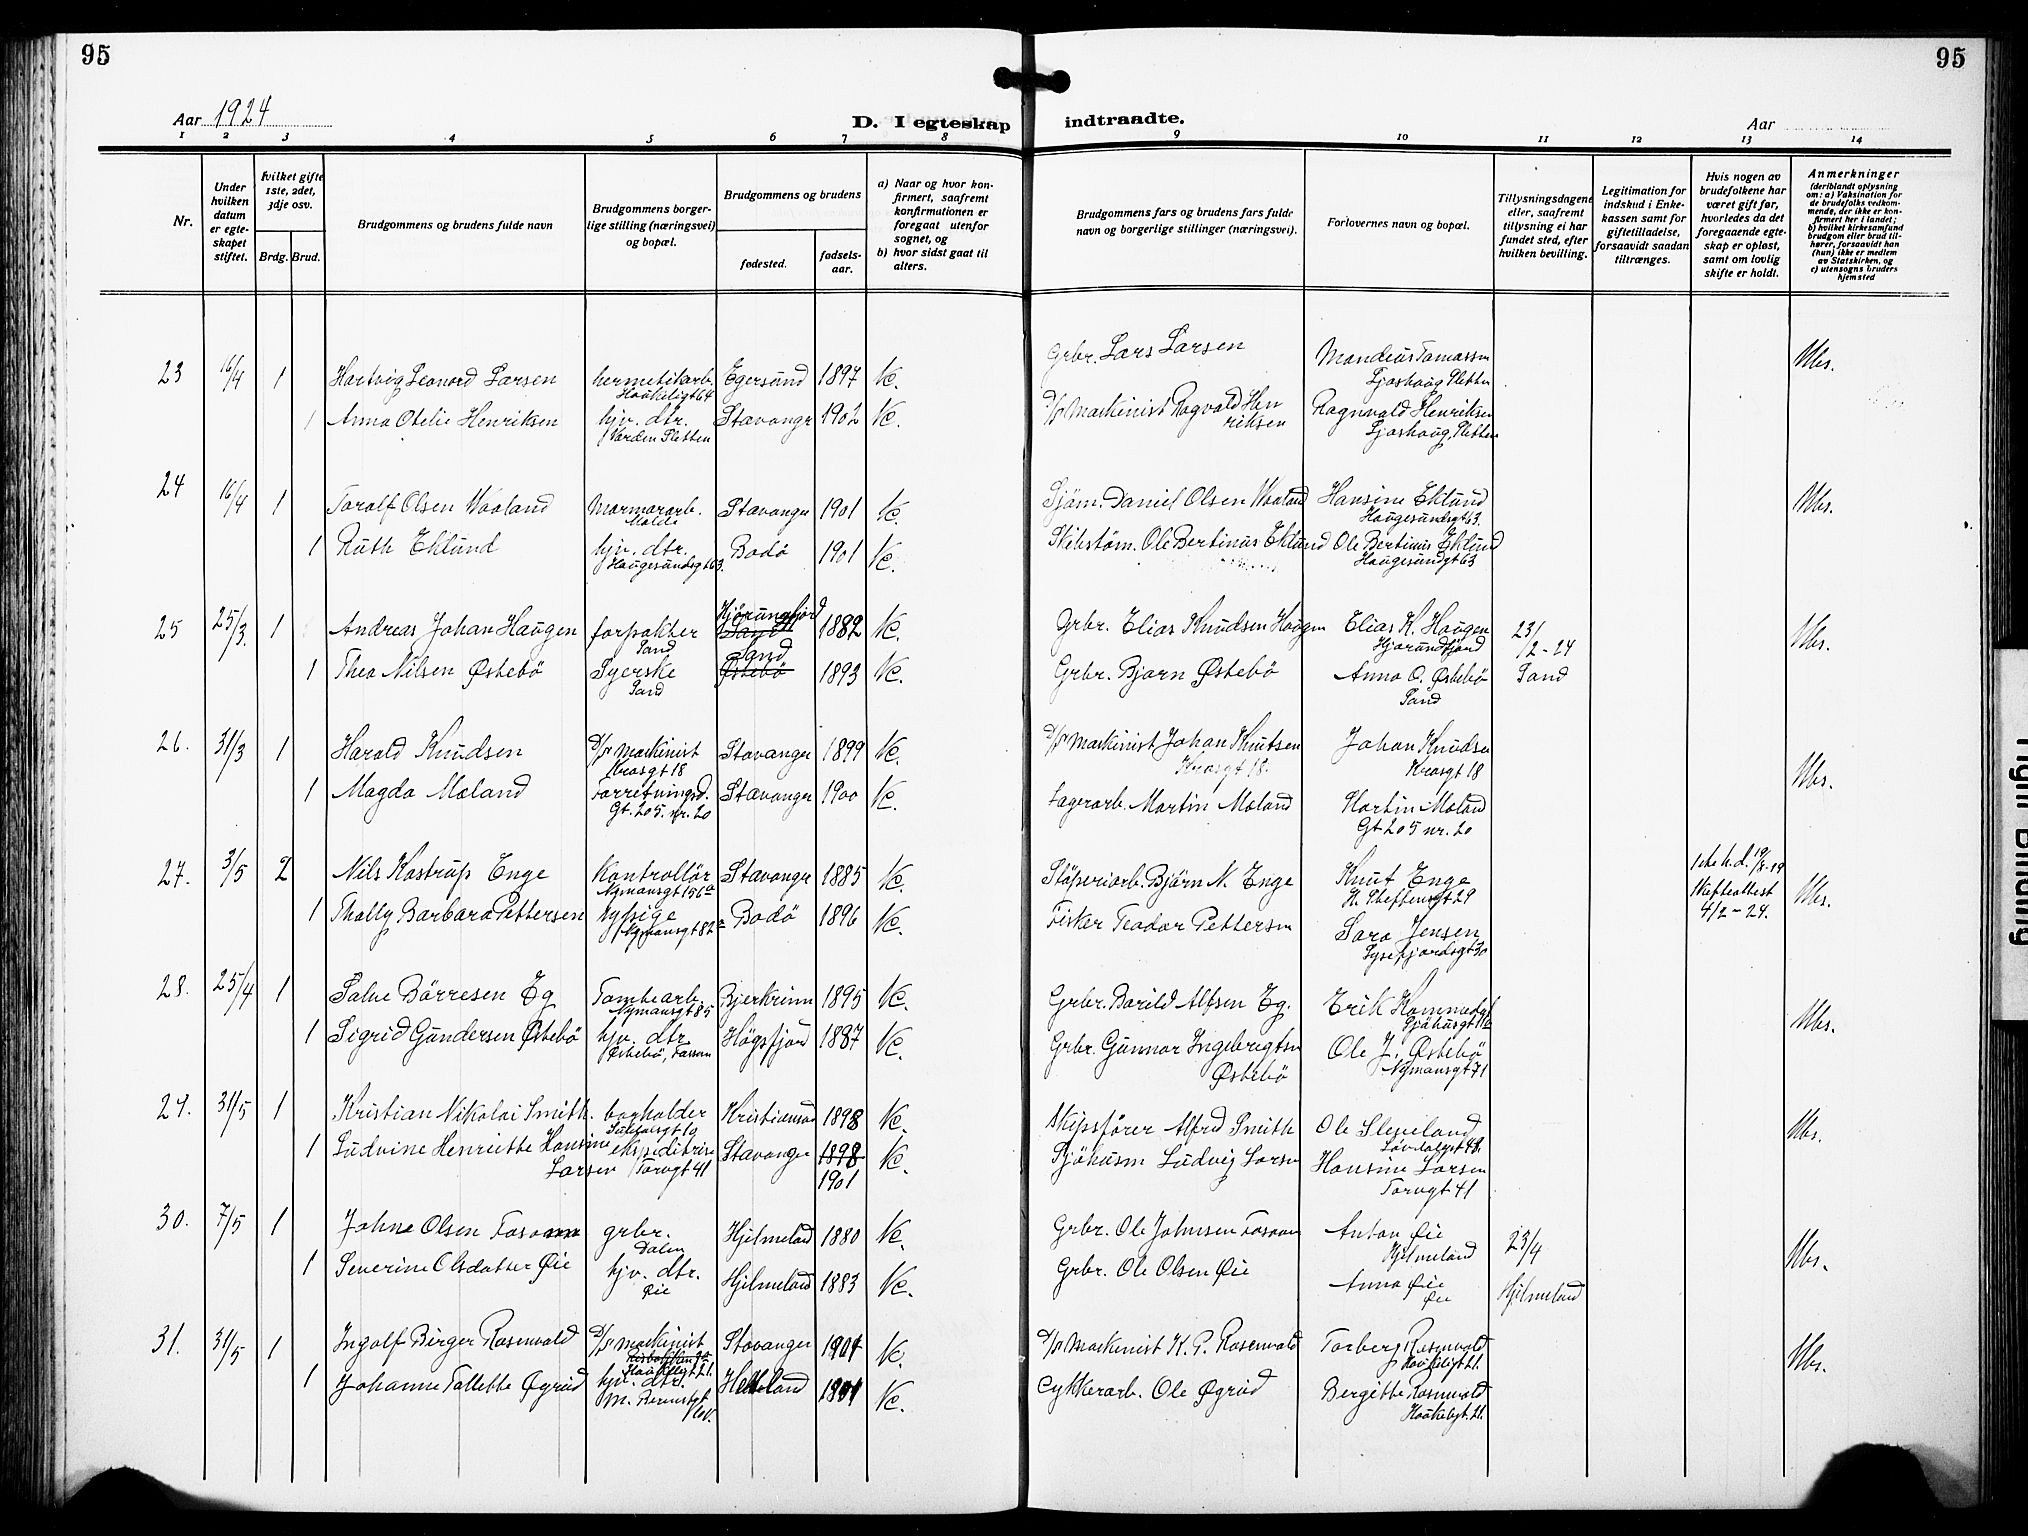 95
95
Aar 1924
D. I egteskap indtraadte.
Aar
1 2 3 4 5 6 7 8 9 10 11 12 13 14
Nr.
Under hvilken datum er egteskapet stiftet.
hvilket gifte 1ste, 2det, 3dje osv.
Brdg. Brud.
Brudgommens og brudens fulde navn
Brudgommens borgerlige stilling (næringsvei) og bopæl.
Brudgommens og brudens
fødested.
fødselsaar.
a) Naar og hvor konfirmert, saafremt konfirmationen er foregaat utenfor sognet, og
b) hvor sidst gaat til alters.
Brudgommens fars og brudens fars fulde navn og borgerlige stillinger (næringsvei).
Forlovernes navn og bopæl.
Tillysningsdagene eller, saafremt tillysning ei har fundet sted, efter hvilken bevilling.
Legitimation for indskud i Enkekassen samt for giftetilladelse, forsaavidt saadan tiltrænges.
Hvis nogen av brudefolkene har været gift før, hvorledes da det foregaaende egteskap er opløst, samt om lovlig skifte er holdt.
Anmerkninger
(deriblandt oplysning om: a) Vaksination for de brudefolks vedkommende, der ikke er konfirmert her i landet; b) hvilket kirkesamfund brudgom eller brud tilhører, forsaavidt han (hun) ikke er medlem av Statskirken, og c) utensogns bruders hjemsted
23 16/4 1 Hartvig Leonard Larsen hermetikarb. Haukeligt 64 Egersund 1897 Vc. Grbr. Lars Larsen Mandius Tomassen Tjoshaug Pletten Vbs.
1 Anna Otelie Henriksen hjv. dtr. Varden Pletten Stavanger 1902 Vc. D/s Maskinist Ragvald Henriksen Ragnvald Henriksen Tjoshaug, Pletten
24 16/4 1 Toralf Olsen Waaland Marmorarb. Molde Stavanger 1901 Vc. Sjøm. Daniel Olsen Waaland Hansine Eklund Haugesundsgt 63. Vbs.
1 Ruth Eklund hjv. dtr. Haugesundsgt 63. Bodö 1901 Vc. Skibstøm. Ole Bertinus Eklund Ole Bertinus Eklund Haugesundgt 63
25 25/3. 1 Andreas Johan Haugen forpakter Sand Hjørungfjord Sand 1882 Vc. Grbr. Elias Knudsen Haugen Elias K. Haugen Hjørundfjord 23/2-24 Vbs.
1 Thea Nilsen Østebö Syerske Sand Sand Østebö 1893 Vc. Grbr. Bjørn Østebö Anna O. Østebö Sand Sand
26. 31/3 1 Harald Knudsen D/s Maskinist Krosgt 18 Stavanger 1899 Vc. D/s Maskinist Johan Knutsen Krosgt 18. Johan Knudsen Krosgt 18 Vbs.
1 Magda Moland Forretningsd. Gt. 205. nr. 20 Stavanger 1900 Vc. Lagerarb. Martin Moland Martin Moland Gt 205 nr. 20
27. 3/5 2 Nils Kastrup Enge Kontrollør Nymansgt 156a Stavanger 1885 Vc. Støperiarb. Bjørn N. Enge Knut Enge H. Steffensgt 29 1ste h.d. 19/8-19 Skifteattest 4/2-24. Vbs.
1 Thally Barbara Pettersen Nymansgt 82a Bodö 1896 Vc. Fisker Teodor Pettersen Sara Jensen Lysefjordsgt 30
28. 25/4 1 Salve Börresen Eg Tomtearb. Nymansgt 85 Bjerkrim 1895 Vc. Grbr. Barild Alfsen Eg. Erik Hommedal Vbs.
1 Sigrid Gundersen Østebö hjv. dtr. Østebö, Fossan Högsfjord 1887 Vc. Grbr. Gunnar Ingebregtsen Østebö Ole J. Østebö Nymansgt 71
29. 31/5 1 Kristian Nikolai Smith. bogholder Kristiansand 1898 Vc. Skipsfører Alfred Smith Ole Sleveland Løvdalsgt 48. Vbs.
1 Ludvine Henriette Hansine Larsen ekspeditrise Torvgt 41 Stavanger 1898 1901 Vc. Sjöhusm Ludvig Larsen Hansine Larsen Torvgt 41
30. 7/5 1 Johne Olsen Fosaaen grbr. Dalen Hjelmeland 1880 Vc. Grbr. Ole Johnsen Fosaaen Anton Øie Hjelmeland 23/4 Vbs.
1 Severine Olsdatter Øie hjv. dtr. Øie Hjelmeland 1883 Vc. Grbr. Ole Olsen Øie Anna Øie Øie Hjelmeland
31. 31/5 1 Ingolf Birger Rosenvald D/s Maskinist Haukeligt 21. Stavanger 1901 Vc. D/s Maskinist K. P. Rosenvald Torberg Rosenvald Haukeligt 21. Vbs.
1 Johanne Tallette Øgrid hjv. dtr. Helleland 1901 Vc. Cykkerarb. Ole Øgrid Bergitte Rosenvald Haukeligt. 21.